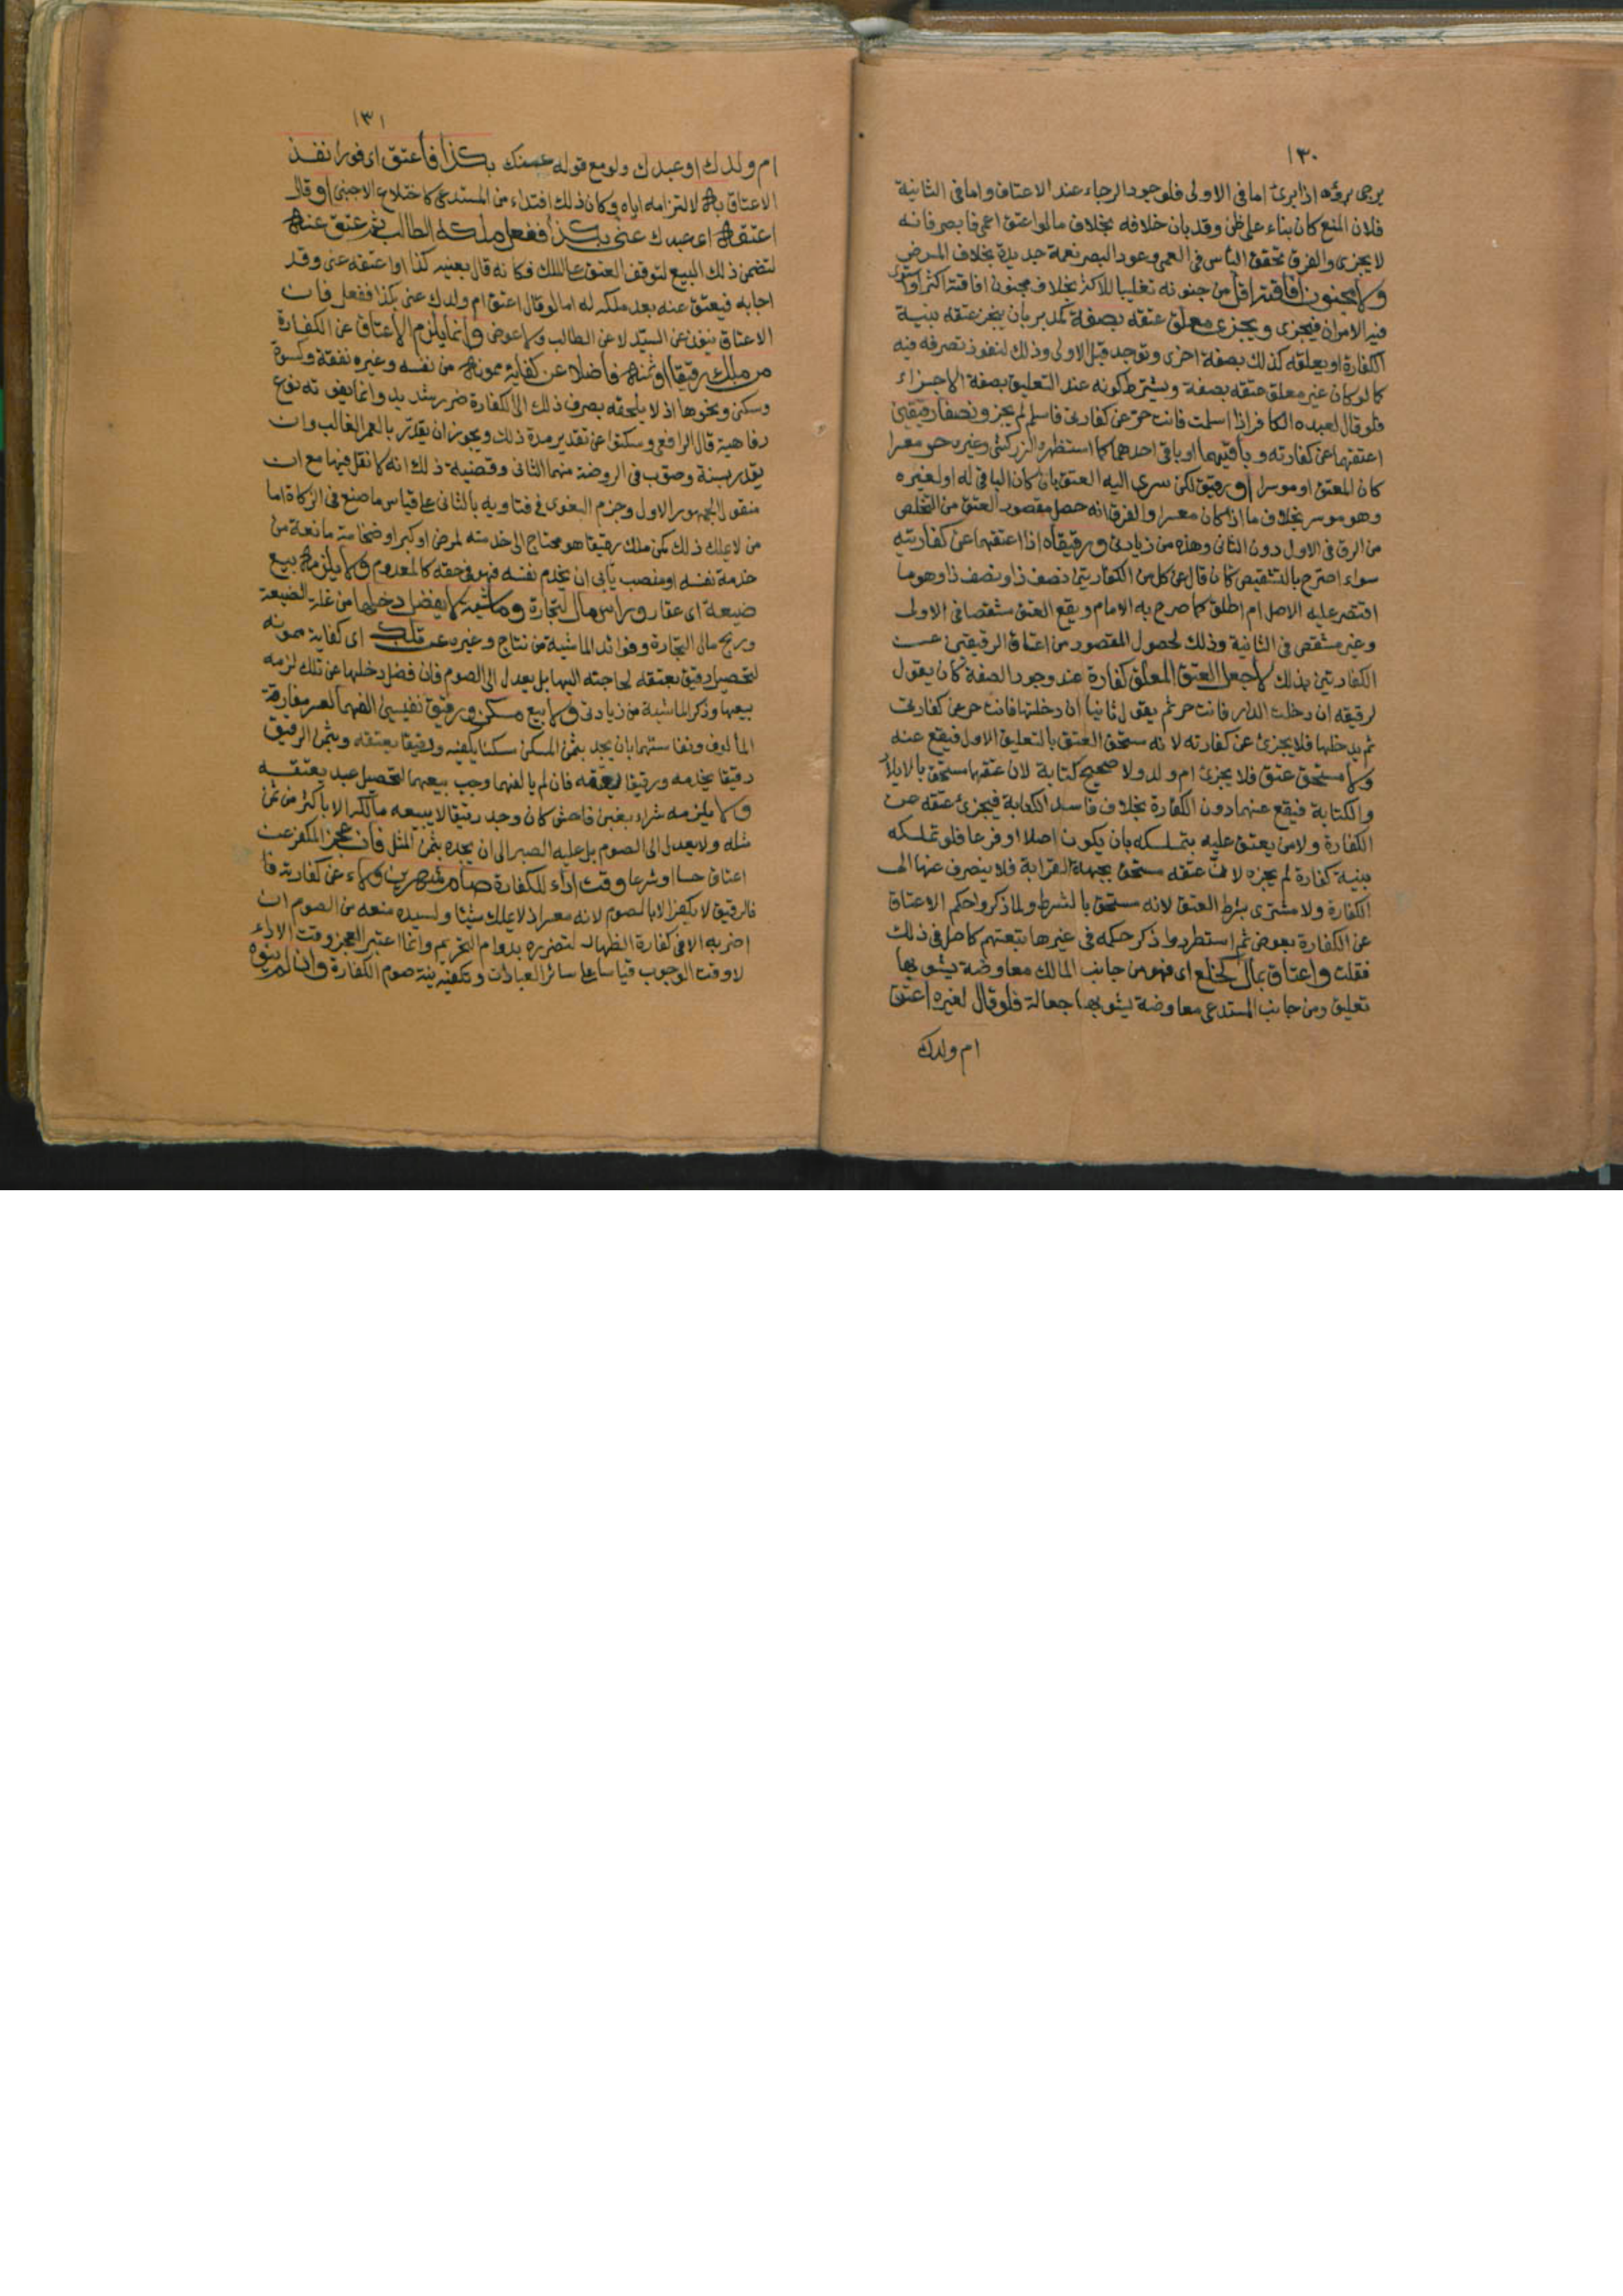 ١٣٠
يرجى برؤه اذا برئ اما في الاولى فلوجود الرجاء عند الاعتاق واما في الثانية
فلان المنع كان بناء على ظن وقد بان خلافه بخلاف ما لو اعتق اعمى فابصر فانه
لا يجزى والفرق تحقق الياس في العمى وعود البصر نعمة جديدة بخلاف المرض
ولا مجنون افاقته اقل من جنونه تغليبا للاكثر بخلاف مجنون افاقته اكثر او استوى
فيه الامران فيجزى ويجزى معلق عتقه بصفة كمدبر بان ينجز عتقه بنية
الكفارة او يعلقه كذلك بصفة اخرى وتوجد قبل الاولى وذلك لنفوذ تصرفه فيه
كما لو كان غير معلق عتقه بصفة ويشترط كونه عند التعليق بصفة الاجزاء
فلو قال لعبده الكافر اذا اسلمت فانت حر عن كفارتى فاسلم لم يجز ونصفا رقيقين
اعتقهما عن كفارته وباقيهما او باقى احدهما كما استظهره الزركشى وغيره حر معسرا
كان المعتق او موسرا او رقيق لكن سرى اليه العتق بان كان الباقى له او لغيره
وهو موسر بخلاف ما اذا كان معسرا والفرق انه حصل مقصود العتق من التخلص
من الرق في الاول دون الثانى وهذه من زيادتى ورقيقاه اذا اعتقهما عن كفارتيه
سواء اصرح بالتشقيص كان قال عن كل من الكفارتين نصف ذا ونصف ذا وهو ما
اقتصر عليه الاصل ام اطلق كما صرح به الامام ويقع العتق مشقصا في الاولى
وغير مشقص في الثانية وذلك لحصول المقصود من اعتاق الرقيقين عن
الكفارتين بذلك لا جعل العتق المعلق كفارة عند وجود الصفة كان يقول
لرقيقه ان دخلت الدار فانت حر ثم يقول ثانيا ان دخلتها فانت حر عن كفارتى
ثم يدخلها فلا يجزئ عن كفارته لانه مستحق العتق بالتعليق الاول فيقع عنه
ولا مستحق عتق فلا يجزئ ام ولد ولا صحيح كتابة لان عتقهما مستحق بالايلاد
والكتابة فيقع عنهما دون الكفارة بخلاف فاسد الكتابة فيجزئ عتقه عن
الكفارة ولا من يعتق عليه بتملكه بان يكون اصلا او فرعا فلو تملكه
بنية كفارة لم يجزه لان عتقه مستحق بجهة القرابة فلا ينصرف عنها الى
الكفارة ولا مشترى بشرط العتق لانه مستحق بالشرط ولما ذكروا حكم الاعتاق
عن الكفارة بعوض ثم استطردوا ذكر حكمه في غيرها تبعتهم كاصلى في ذلك
فقلت واعتاق بمال كخلع اى فهو من جانب المالك معاوضة يشوبها
تعليق ومن جانب المستدعى معاوضة يشوبها جعالة فلو قال لغيره اعتق
ام ولدك
١٣١
ام ولدك او عبدك ولو مع قوله عنك بكذا فاعتق اى فورا نفذ
الاعتاق به لالتزامه اياه وكان ذلك افتداء من المستدعى كاختلاع الاجنبى او قال
اعتقه اى عبدك عنى بكذا ففعل ملكه الطالب ثم عتق عنه
لتضمن ذلك البيع لتوقف العتق على الملك فكانه قال بعنيه كذا او اعتقه عنى وقد
اجابه فيعتق عنه بعد ملكه له اما لو قال اعتق ام ولدك عنى بكذا ففعل فان
الاعتاق ينفذ عن السيد لا عن الطالب ولا عوض وانما يلزم الاعتاق عن الكفارة
من ملك رقيقا او ثمنه فاضلا عن كفاية ممونه من نفسه وغيره نفقة وكسوة
وسكنى ونحوها اذ لا يلحقه بصرف ذلك الى الكفارة ضرر شديد وانما يفوته نوع
رفاهية قال الرافعى وسكتوا عن تقدير مدة ذلك ويجوز ان يقدر بالعمر الغالب وان
يقدر بسنة وصوب في الروضة منهما الثانى وقضية ذلك انه لا نقل فيها مع ان
منقول الجمهور الاول وجزم البغوى في فتاويه بالثانى على قياس ما صنع في الزكاة اما
من لا يملك ذلك كمن ملك رقيقا هو محتاج الى خدمته لمرض او كبر او ضخامة مانعة من
خدمة نفسه او منصب يابى ان يخدم نفسه فهو في حقه كالمعدوم ولا يلزمه بيع
ضيعة اى عقار وراس مال لتجارة وماشية لا يفضل دخلها من غلة الضيعة
وربح مال التجارة وفوائد الماشية من نتاج وغيره عن تلك اى كفاية ممونه
لتحصيل رقيق يعتقه لحاجته اليها بل يعدل الى الصوم فان فضل دخلها عن تلك لزمه
بيعها وذكر الماشية من زيادتى ولا بيع مسكن ورقيق نفيسين الفهما لعسر مفارقة
المألوف ونفاستهما بان يجد بثمن المسكن مسكنا يكفيه ورقيقا يعتقه وبثمن الرقيق
رقيقا يخدمه ورقيقا يعتقه فان لم يالفهما وجب بيعهما لتحصيل عبد يعتقه
ولا يلزمه شراء بغبن فاحش كان وجد رقيقا لا يبيعه مالكه الا باكثر من ثمن
مثله ولا يعدل الى الصوم بل عليه الصبر الى ان يجده بثمن المثل فان عجز المكفر عن
اعتاق حسا او شرعا وقت اداء للكفارة صام شهرين ولاء عن كفارته فا
فالرقيق لا يكفر الا بالصوم لانه معسر اذ لا يملك شيئا ولسيده منعه من الصوم ان
اضر به الا في كفارة الظهار لتضرره بدوام التحريم وانما اعتبر العجز وقت الاداء
لا وقت الوجوب قياسا على سائر العبادات وتكفيه نية صوم الكفارة وان لم ينو